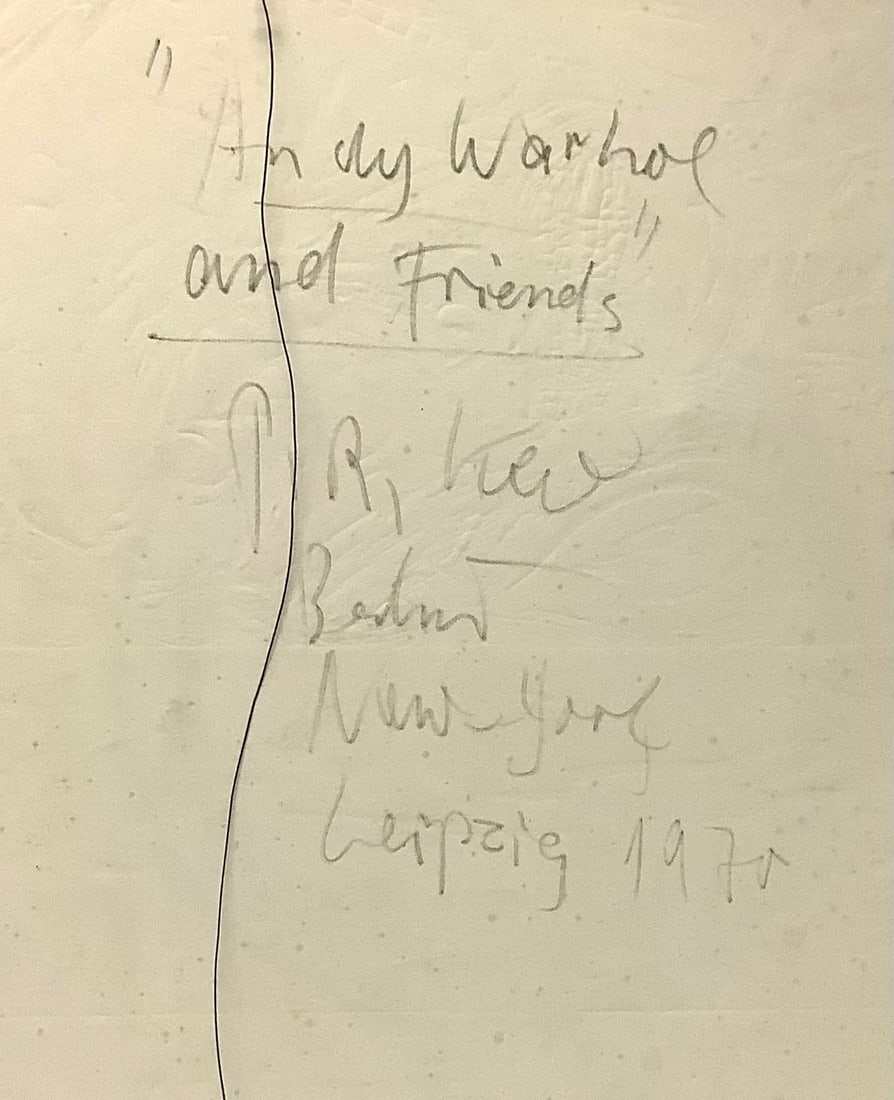 "Andy Warhol
and Friends"
R,
Berlin
New York
Leipzig 1970